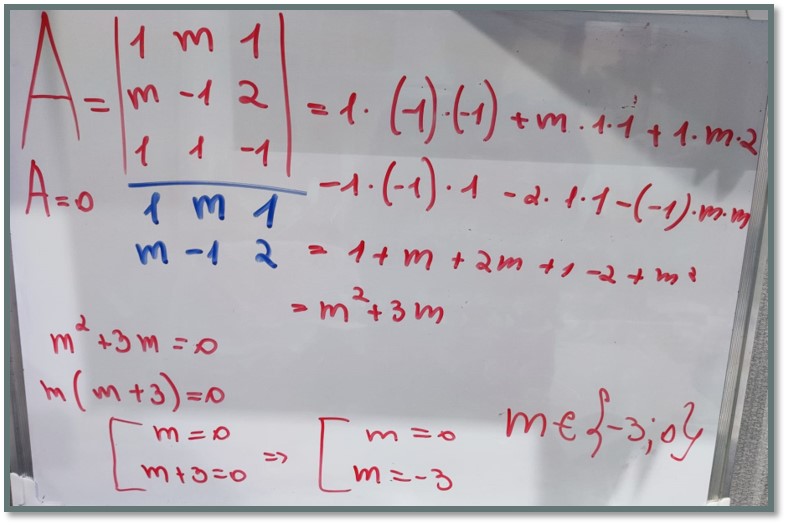 A = | 1 m 1 |
| m -1 2 | = 1 · (-1) · (-1) + m · 1 · 1 + 1 · m · 2
| 1 1 -1 |
A = 0
1 m 1 - 1 · (-1) · 1 - 2 · 1 · 1 - (-1) · m · m
m -1 2 = 1 + m + 2m + 1 - 2 + m²
= m² + 3m
m² + 3m = 0
m(m + 3) = 0
[ m = 0 => [ m = 0
m + 3 = 0 m = -3
m ∈ {-3; 0}